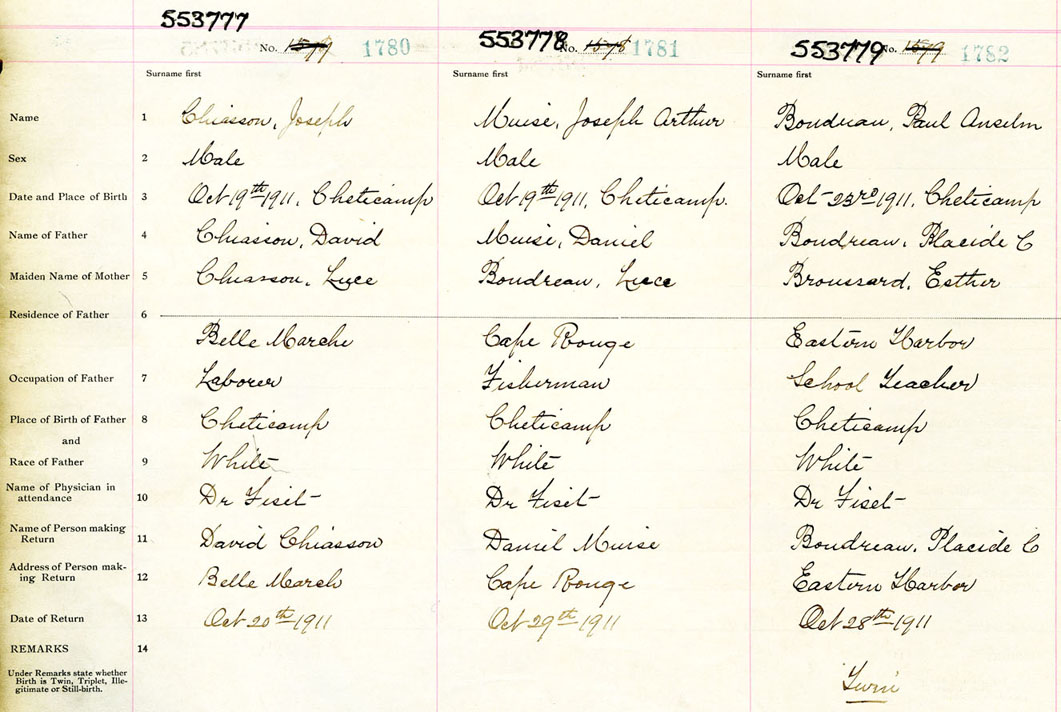 553777 553778 553779
No. 1577 1780 No. 1578 1781 No. 1579 1782
Surname first Surname first Surname first
Name 1 Chiasson, Joseph Muise, Joseph Arthur Boudreau, Paul Anselm
Sex 2 Male Male Male
Date and Place of Birth 3 Oct 19th 1911, Cheticamp Oct 19th 1911, Cheticamp. Oct 23rd 1911, Cheticamp
Name of Father 4 Chiasson, David Muise, Daniel Boudreau, Placide C
Maiden Name of Mother 5 Chiasson, Luce Boudreau, Luce Broussard, Esther
Residence of Father 6
Belle Marche Cape Rouge Eastern Harbor
Occupation of Father 7 Laborer Fisherman School Teacher
Place of Birth of Father 8 Cheticamp Cheticamp Cheticamp
and
Race of Father 9 White White White
Name of Physician in
attendance 10 Dr Fiset Dr Fiset Dr Fiset
Name of Person making
Return 11 David Chiasson Daniel Muise Boudreau, Placide C
Address of Person mak-
ing Return 12 Belle March Cape Rouge Eastern Harbor
Date of Return 13 Oct 20th 1911 Oct 29th 1911 Oct 28th 1911
REMARKS 14
Under Remarks state whether
Birth is Twin, Triplet, Ille-
gitimate or Still-birth.
Twin